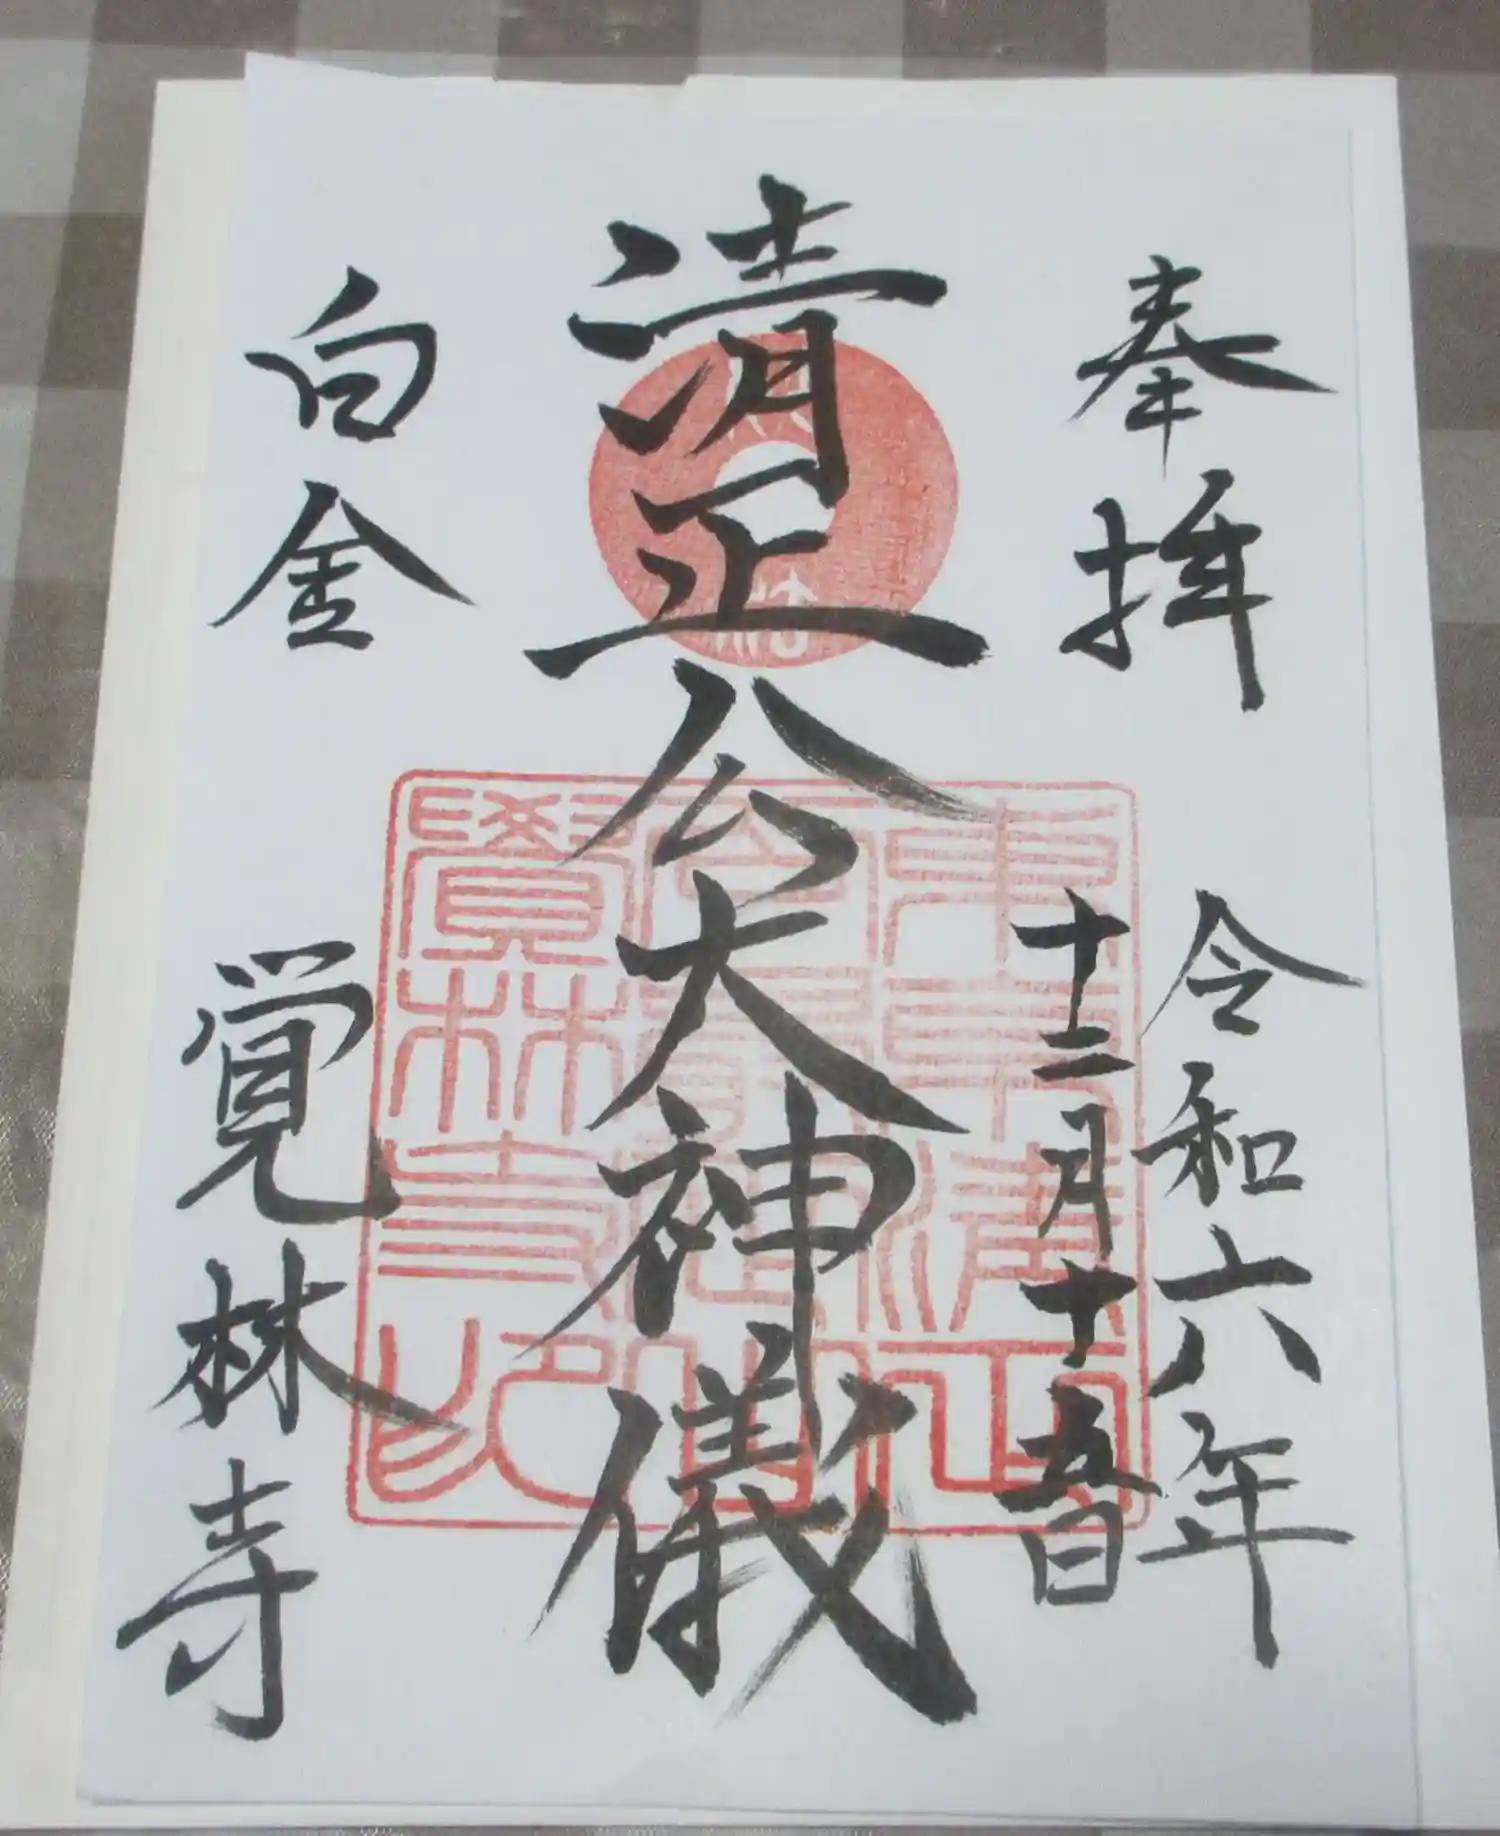 奉拝
令和六年
十二月十五日
清正公大神儀
白金
覚林寺
覺林寺印